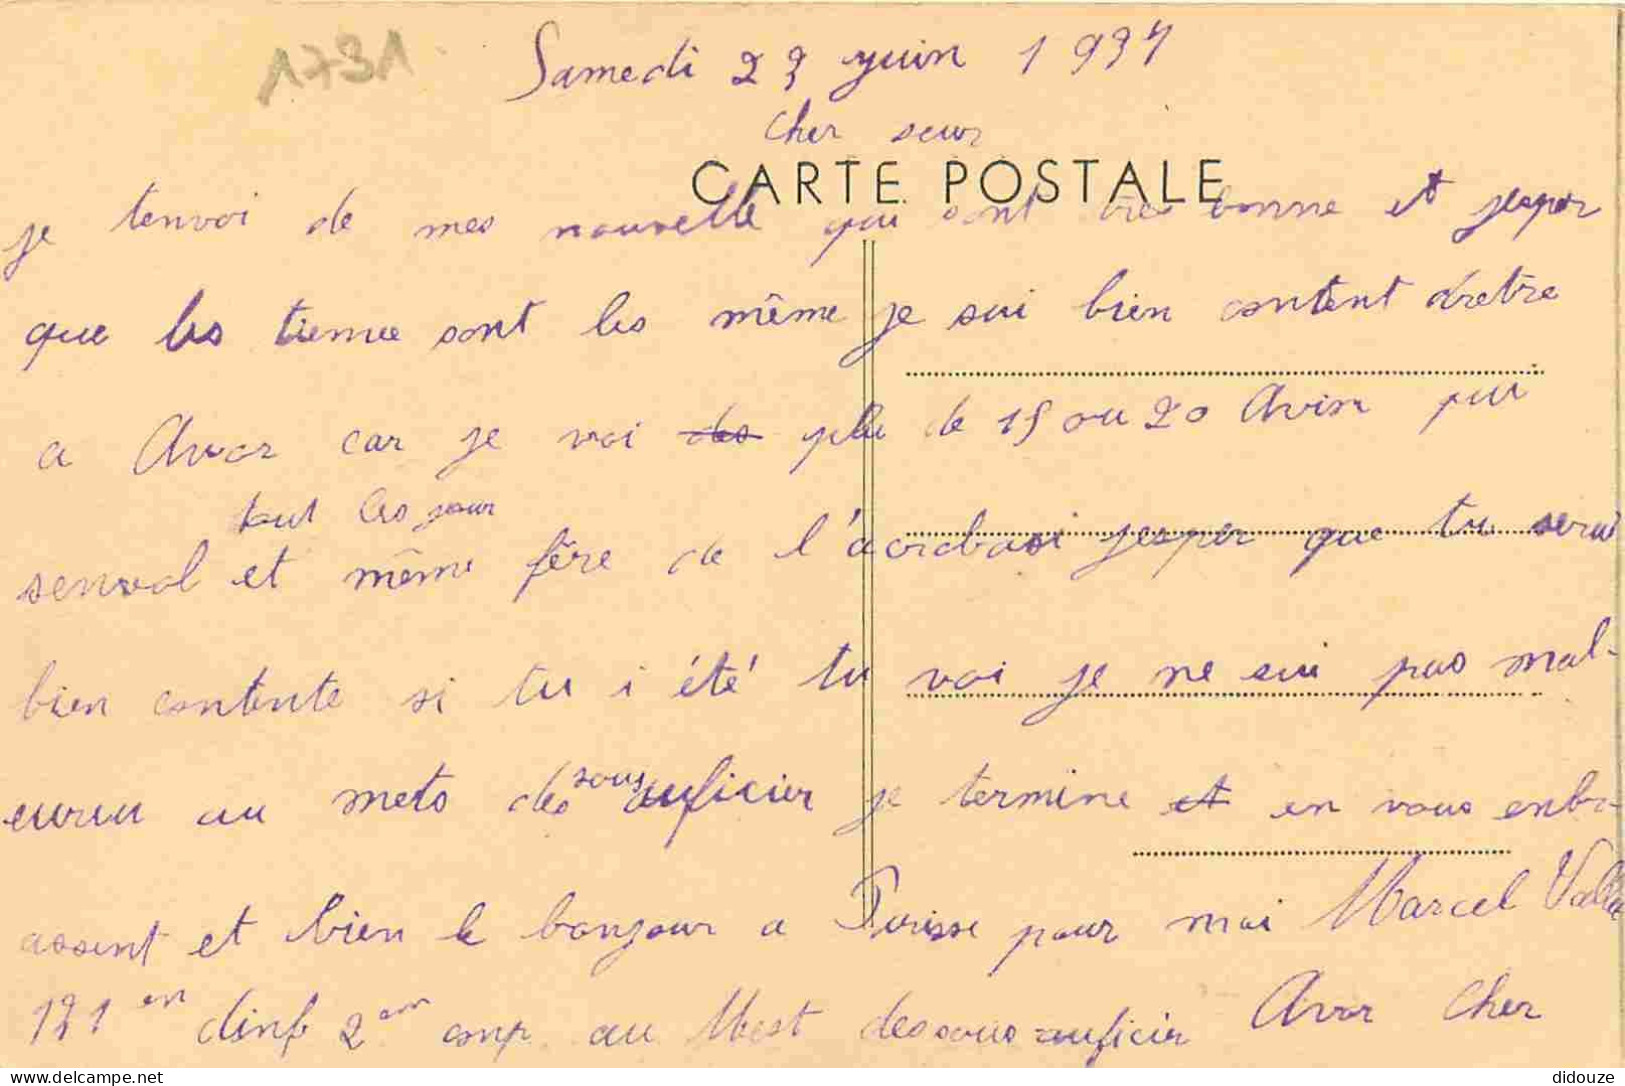 1731
Samedi 23 juin 1934
Cher seur
CARTE POSTALE
je tenvoi de mes nouvelle qui sont tres bonne et jesper
que les tienne sont les même je sui bien content d'retre
a Avor car je voi des plu de 15 ou 20 Avion pur
tout les jour
senvol et même fère de l'acrobasi jesper que tu serai
bien contente si tu i été tu voi je ne sui pas mal-
eureu au mets des sous auficier je termine et en vous enbr
assent et bien le bonjour a pour moi Marcel
121 en dinf 2 em comp au Mest des sous auficier Avor Cher
didouze